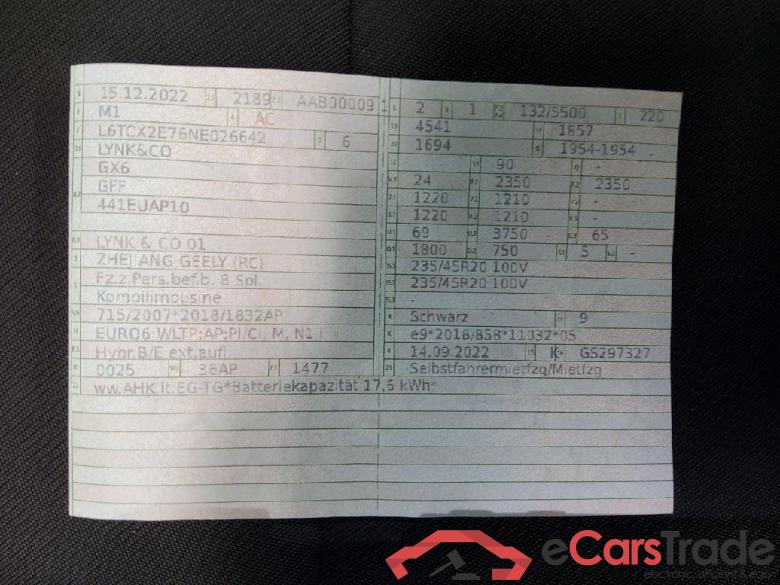 15.12.2022 2189 AAB00009 1
M1 AC
L6TCX2E76NE026642 6
LYNK&CO
GX6
GFF
441EUAP10
LYNK & CO 01
ZHEJIANG GEELY (RC)
Fz.z.Pers.bef.b. 8 Spl.
Kombilimousine
715/2007*2018/1832AP
EURO6 WLTP;AP;PI/CI; M, N1 I
Hybr.B/E ext.aufl
0025 36AP 1477
ww.AHK lt.EG-TG*Batteriekapazität 17,6 kWh*
2 1 132/5500 220
4541 1857
1694 1954-1954 -
90 -
24 2350 2350
1220 1210 -
1220 1210 -
69 3750 65
1800 750 5 -
235/45R20 100V
235/45R20 100V
-
Schwarz 9
e9*2018/858*11032*05
14.09.2022 K GS297327
Selbstfahrermietfzg/Mietfzg
eCarsTrade